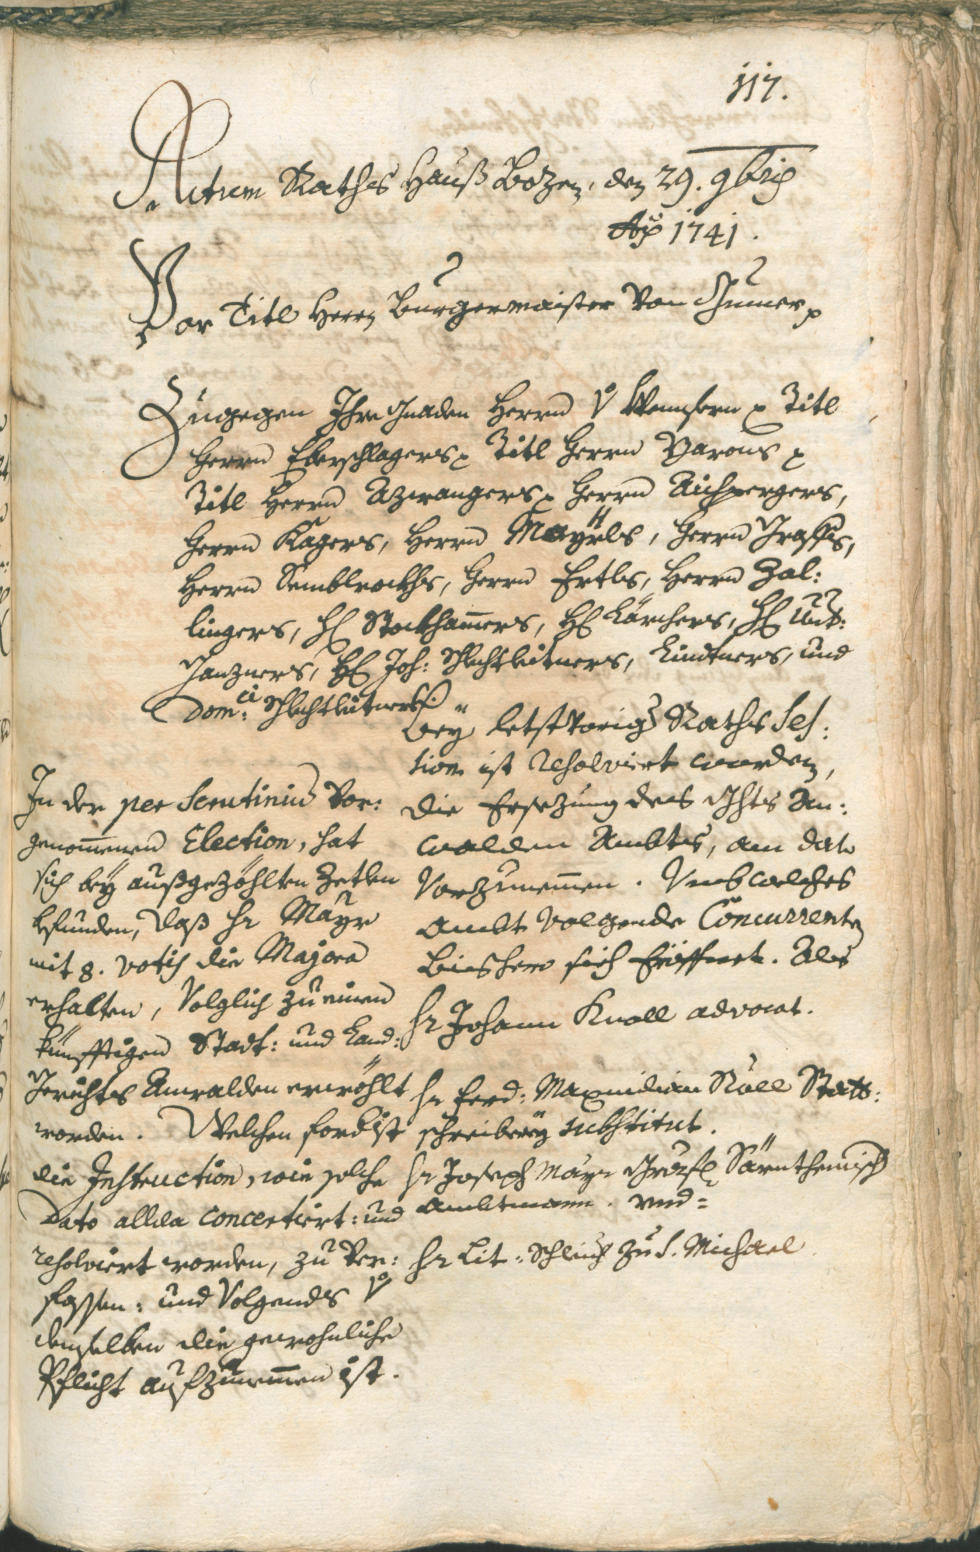 117.
Actum Raths Hauß Bozen, den 29. 9bris
Ao 1741.
Vor Titl Herrn Burgermaister von
Zugegen Ihro Gnaden Herrn V: Titl
Herrn Eberschlagers Titl Herrn Barons
Titl Herrn Azwangers Herrn Aichpergers,
Herrn Kagers, Herrn Mayrls, Herrn Graffs,
Herrn Semblrockhs, Herrn Ertls, Herrn Zal:
lingers, H: Stockhamers, H: Kärchers, H: Unt:
Ganzners, H: Joh: Schlechtleitners, Lindtners, und
Dom: Schlechtleitners.
Bey letst vorig Raths Ses:
sion ist resolviert worden,
die Ersezung des Ghts An:
walden Ambts, an dato
Vorzunemmen. Umb welches
Ambt Volgende Concurrenten
bishero sich Eröffnet. Als
Hr Johann Knoll advocat.
Hr Ferd: Maximilian Röll Statt:
schreiberey substitut.
Hr Joseph Mayr Gräfl Särntheinisch
Ambtmann. und=
Hr Lit: Schleich zu S. Michael
In der per Scrutinium Vor:
genommenen Election, hat
sich bey außgezöhlten Zetlen
befunden, daß Hr Mayr
mit 8. votis die Majora
erhalten, Volglich zu einen
künfftigen Statt: und Land:
Gerichts Anwalden erwöhlt
worden. Welchen fordist
die Instruction, wie solche
Dato allda concertiert: und
resolviert worden, zu Ver:
fassen: und Volgends
demselben die gewohnliche
Pflicht aufzunemmen ist.